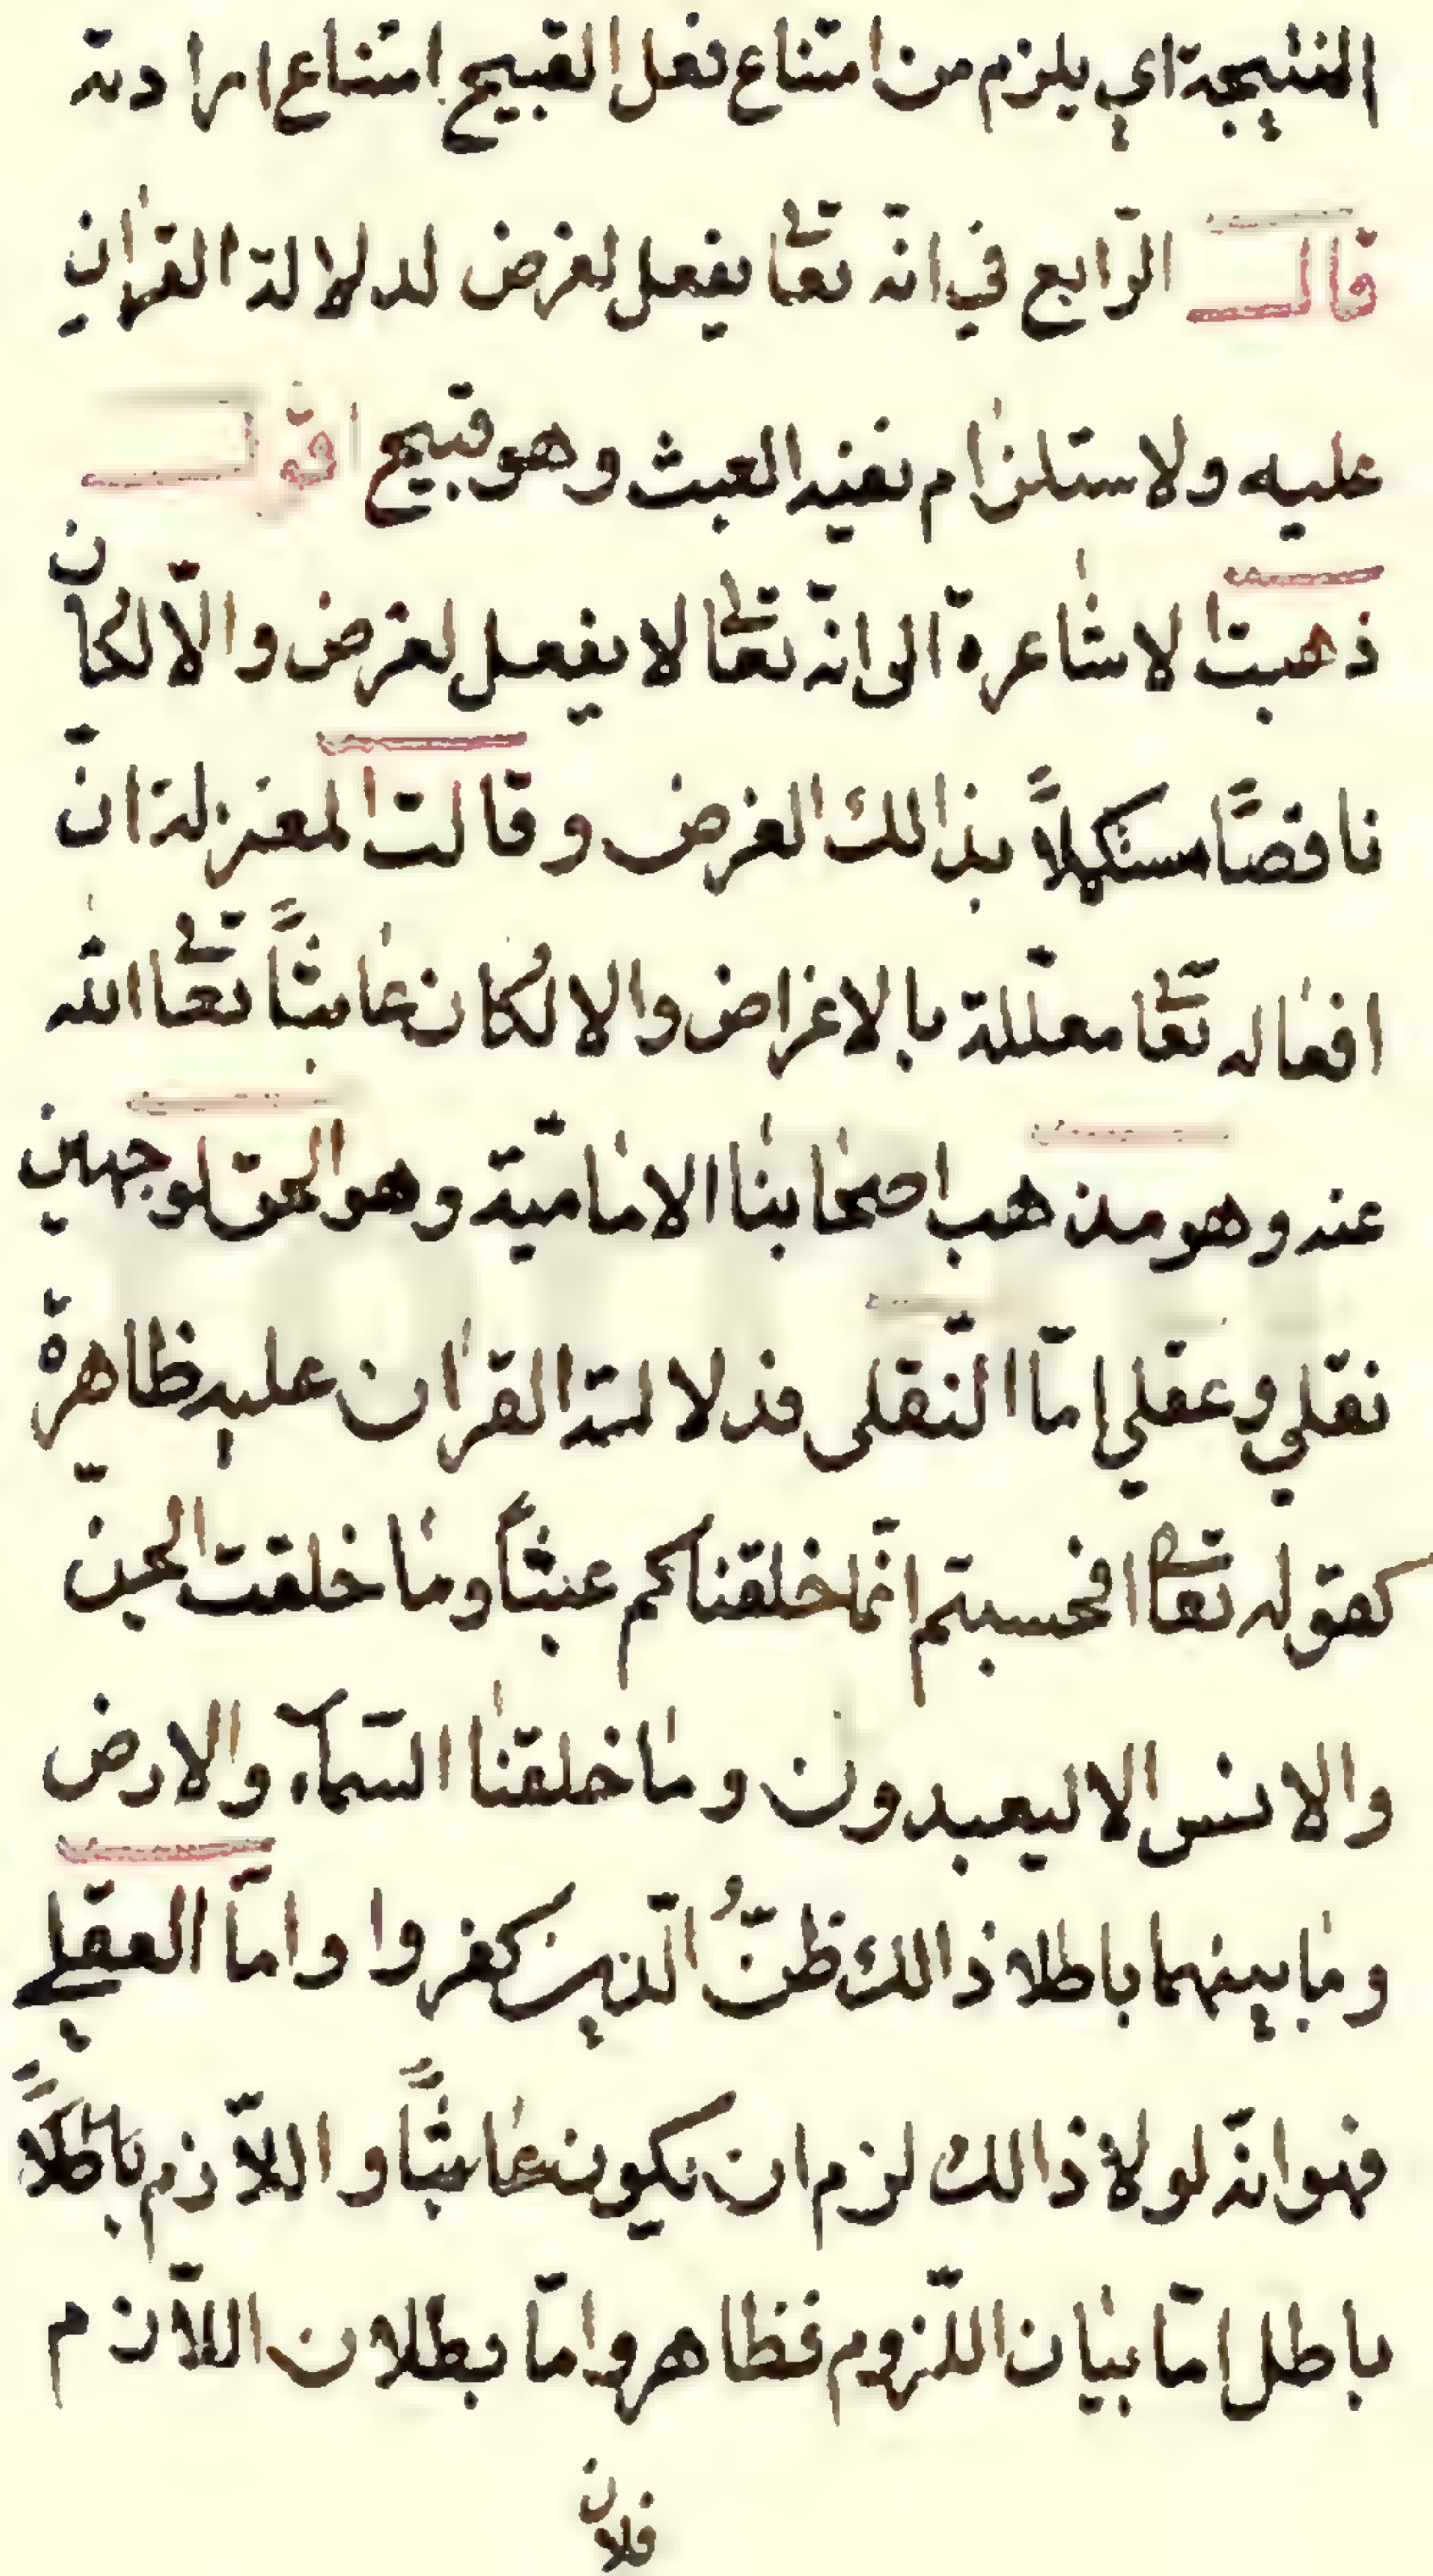 النتيجة اي يلزم من امتناع فعل القبيح امتناع ارادته
قال الرّابع في انّه تعالى يفعل لغرض لدلالة القرٰان
عليه ولاستلزام نفيه العبث وهو قبيح اقول
ذهبت الاشاعرة الى انّه تعالى لا يفعل لغرض والّا لكان
ناقصًا مستكملاً بذالك الغرض وقالت المعتزلة انّ
افعاله تعالى معلّلة بالاغراض والا لكان عابثًا تعالى الله
عنه وهو مذهب اصحابنا الاماميّة وهو الحقّ لوجهين
نقلي وعقلي امّا النّقلى فدلالة القرٰان عليه ظاهرة
كقوله تعالى افحسبتم انّما خلقناكم عبثاً وما خلقت الجنّ
والانس الا ليعبدون وما خلقنا السّمآء والارض
وما بينهما باطلا ذالك ظنّ الّذين كفروا وامّا العقلي
فهو انّه لولا ذالك لزم ان يكون عابثًا واللّازم باطلاً
باطل امّا بيان اللّزوم فظاهر وامّا بطلان اللّازم
فلان